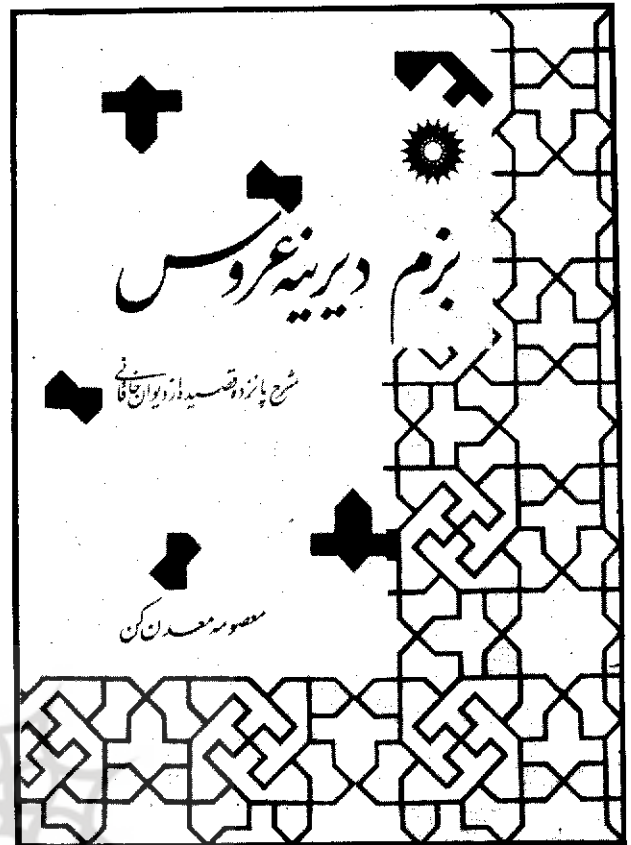 بزم دیرینه عروس
شرح پانزده قصیده از دیوان خاقانی
معصومه معدن کن